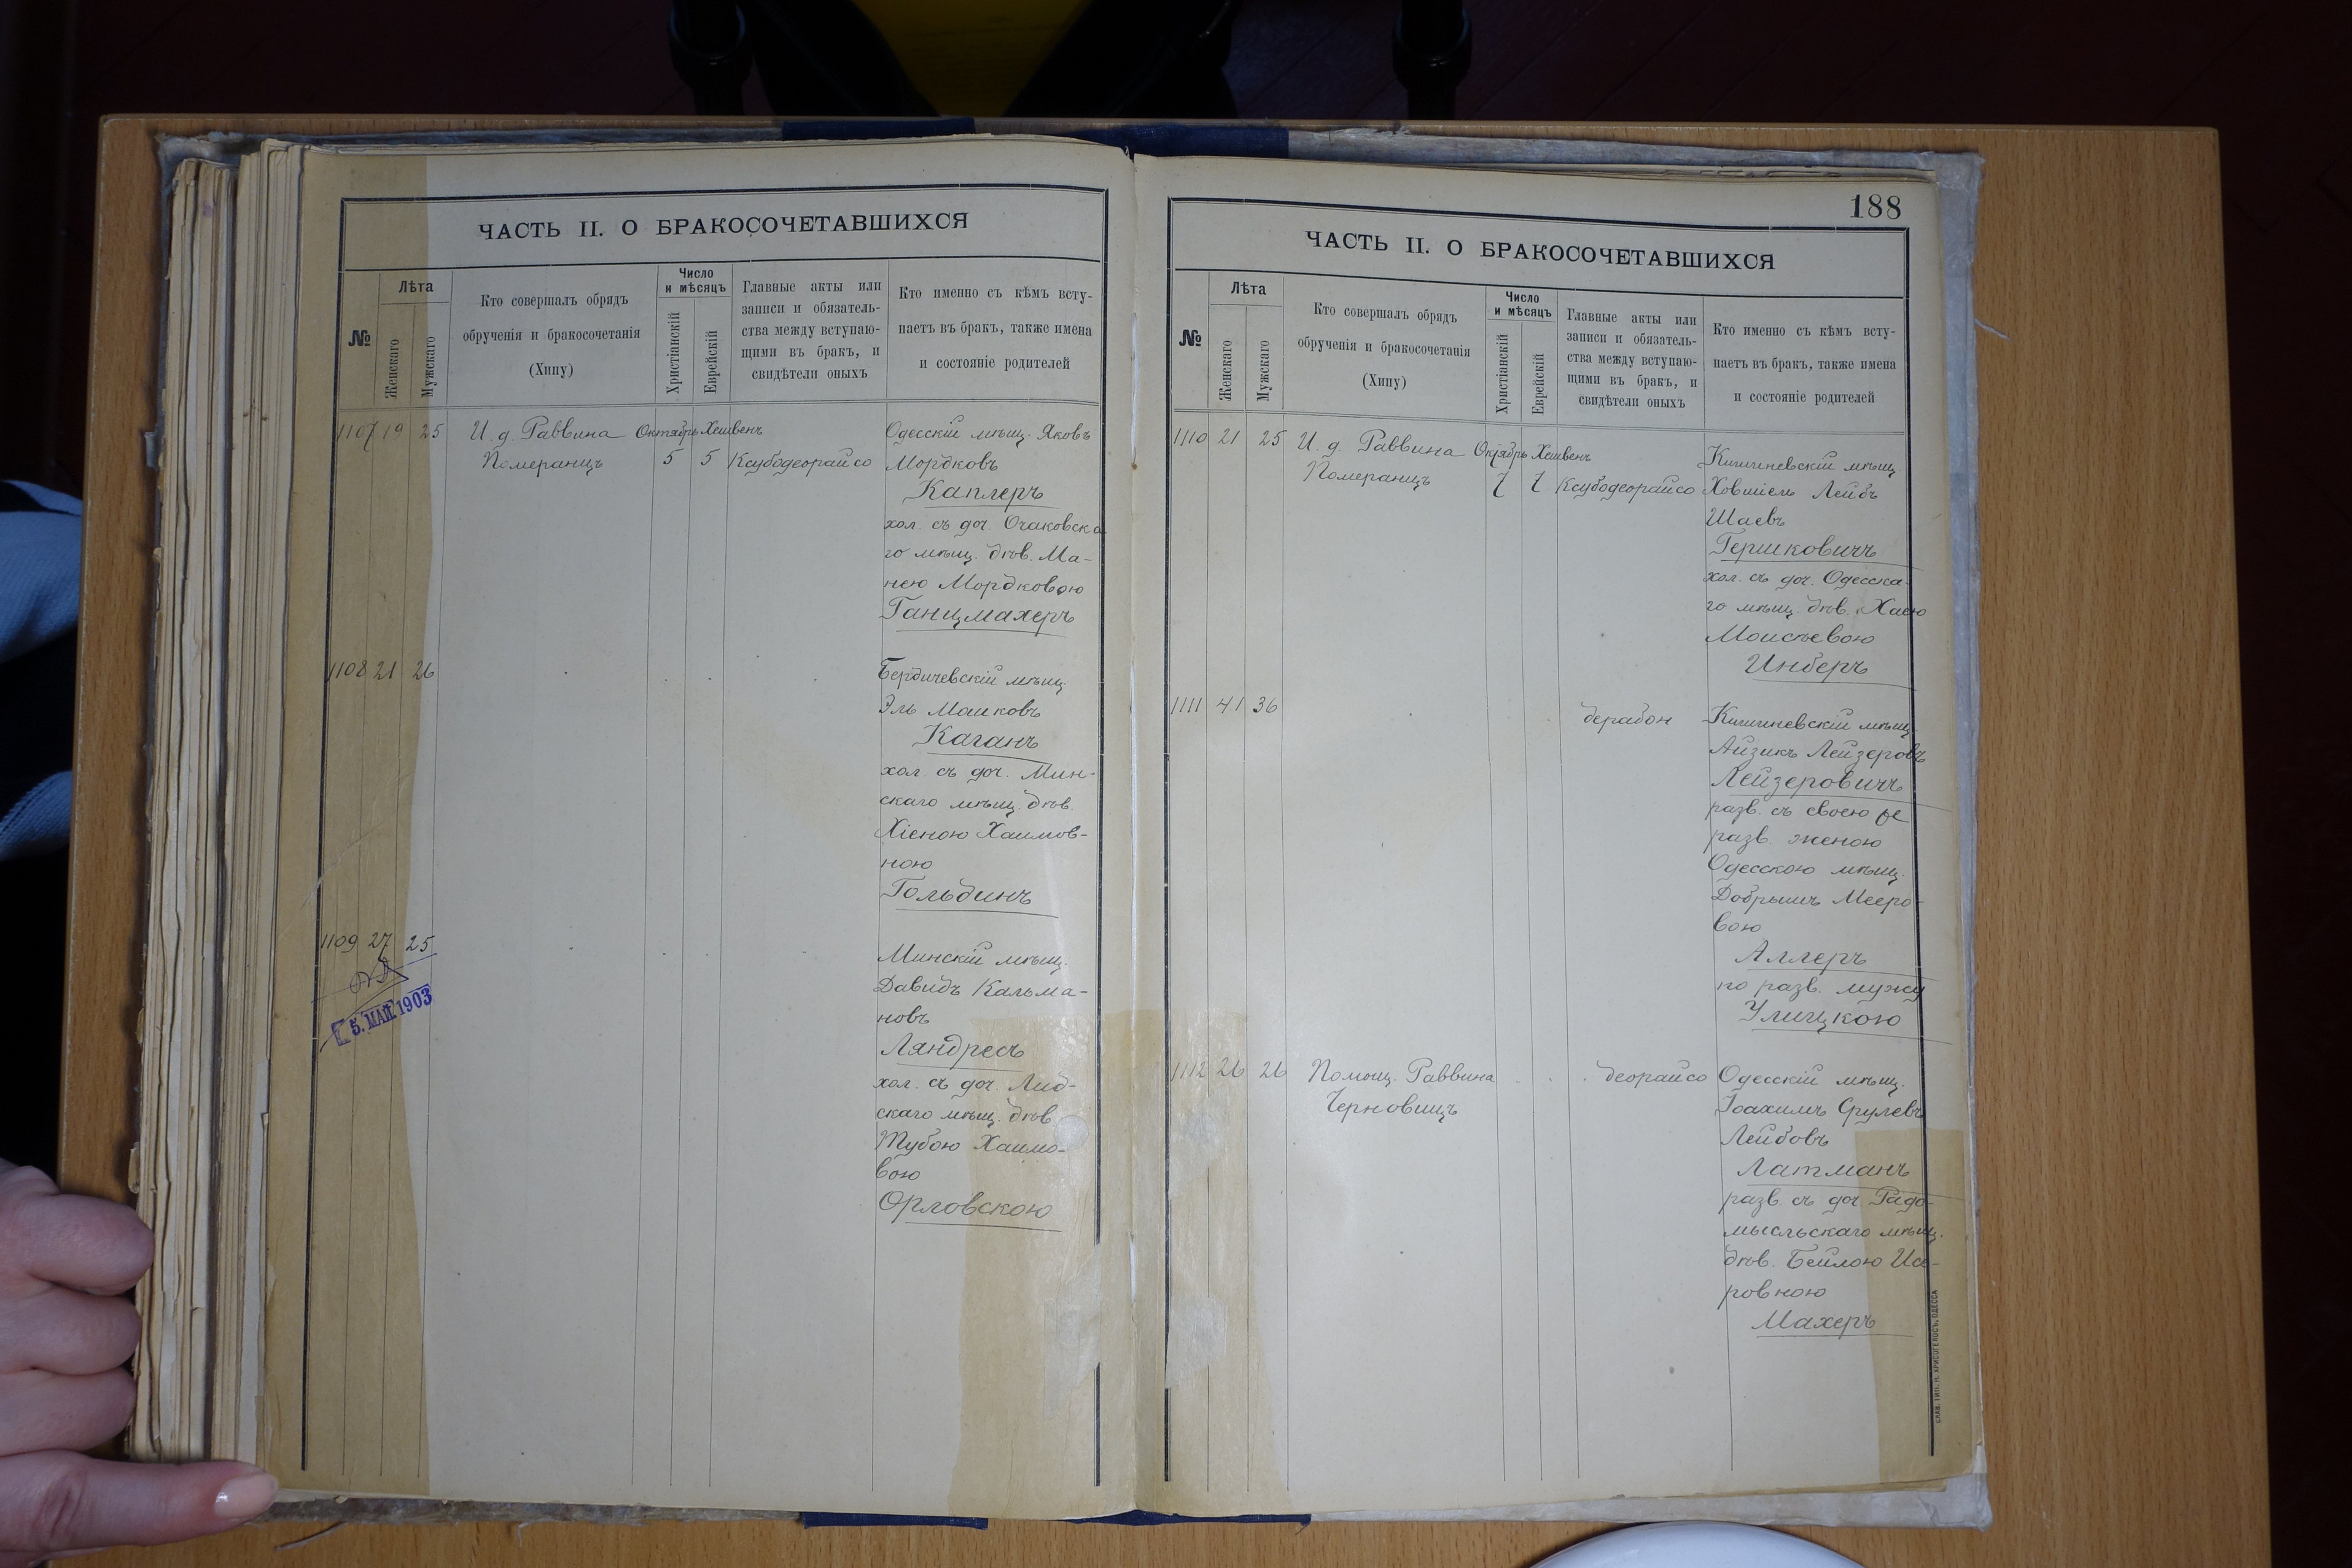 ЧАСТЬ II. О БРАКОСОЧЕТАВШИХСЯ
№
Лѣта
Женскаго
Мужскаго
Кто совершалъ обрядъ
обрученія и бракосочетанія
(Хипу)
Число
и мѣсяцъ
Христіанскій
Еврейскій
Главные акты или
записи и обязатель-
ства между вступаю-
щими въ бракъ, и
свидѣтели оныхъ
Кто именно съ кѣмъ всту-
паетъ въ бракъ, также имена
и состояніе родителей
1107 19 25 И. д. Раввина Октябрь Хешвенъ
Померанцъ 5 5 Ксубодеорайсо
Одесскій мѣщ. Яковъ
Мордковъ
Каплеръ
хол. съ доч. Очаковска
го мѣщ. дѣв. Ма-
нею Мордковою
Ганцмахеръ
1108 21 26
Бердичевскій мѣщ.
Эль Машковъ
Каганъ
хол. съ доч. Мин-
скаго мѣщ. дѣв.
Хіеною Хаимов-
ною
Гольдинъ
1109 27 25
5. МАЯ 1903
Минскій мѣщ.
Давидъ Кальма-
новъ
Ляндресъ
хол. съ доч. Лид-
скаго мѣщ. дѣв
Тубою Хаимо-
вою
Орловскою
188
ЧАСТЬ II. О БРАКОСОЧЕТАВШИХСЯ
№
Лѣта
Женскаго
Мужскаго
Кто совершалъ обрядъ
обрученія и бракосочетанія
(Хипу)
Число
и мѣсяцъ
Христіанскій
Еврейскій
Главные акты или
записи и обязатель-
ства между вступаю-
щими въ бракъ, и
свидѣтели оныхъ
Кто именно съ кѣмъ всту-
паетъ въ бракъ, также имена
и состояніе родителей
1110 21 25 И. д. Раввина Октябрь Хешвенъ
Померанцъ 7 7 Ксубодеорайсо
Кишиневскій мѣщ
Ховшіель Лейбъ
Шаевъ
Гершковичъ
хол. съ доч. Одесска-
го мѣщ. дѣв. Хаею
Моисѣевою
Инберъ
1111 41 36 дерабон
Кишиневскій мѣщ.
Айзикъ Лейзеровъ
Лейзеровичъ
разв. съ своею
разв. женою
Одесскою мѣщ.
Добрышъ Мееро-
вою
Аллеръ
по разв. мужу
Улицкою
1112 26 26 Помощ. Раввина деорайсо
Черновицъ
Одесскій мѣщ.
Іоахимъ Срулевъ
Лейбовъ
Латманъ
разв. съ доч. Радо-
мысльскаго мѣщ.
дѣв. Бейлою Исе-
ровною
Махеръ
СЛАВ. ТИП. Н. ХРИСОГЕЛОСЪ, ОДЕССА